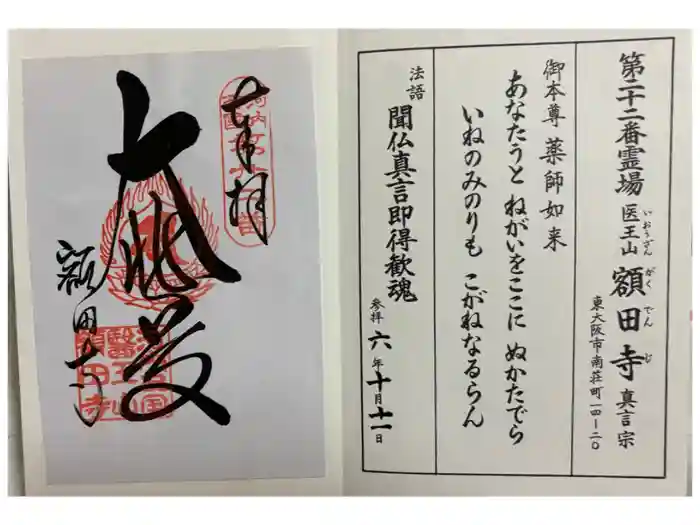 第二十二番霊場 医王山 額田寺 真言宗
いおうざん がくでんじ
東大阪市南荘町一四ー二〇
御本尊 薬師如来
あなたうと ねがいをここに ぬかたでら
いねのみのりも こがねなるらん
法語 聞仏真言即得歓魂
参拝 六年十月十一日
奉拝
大悲殿
額田寺